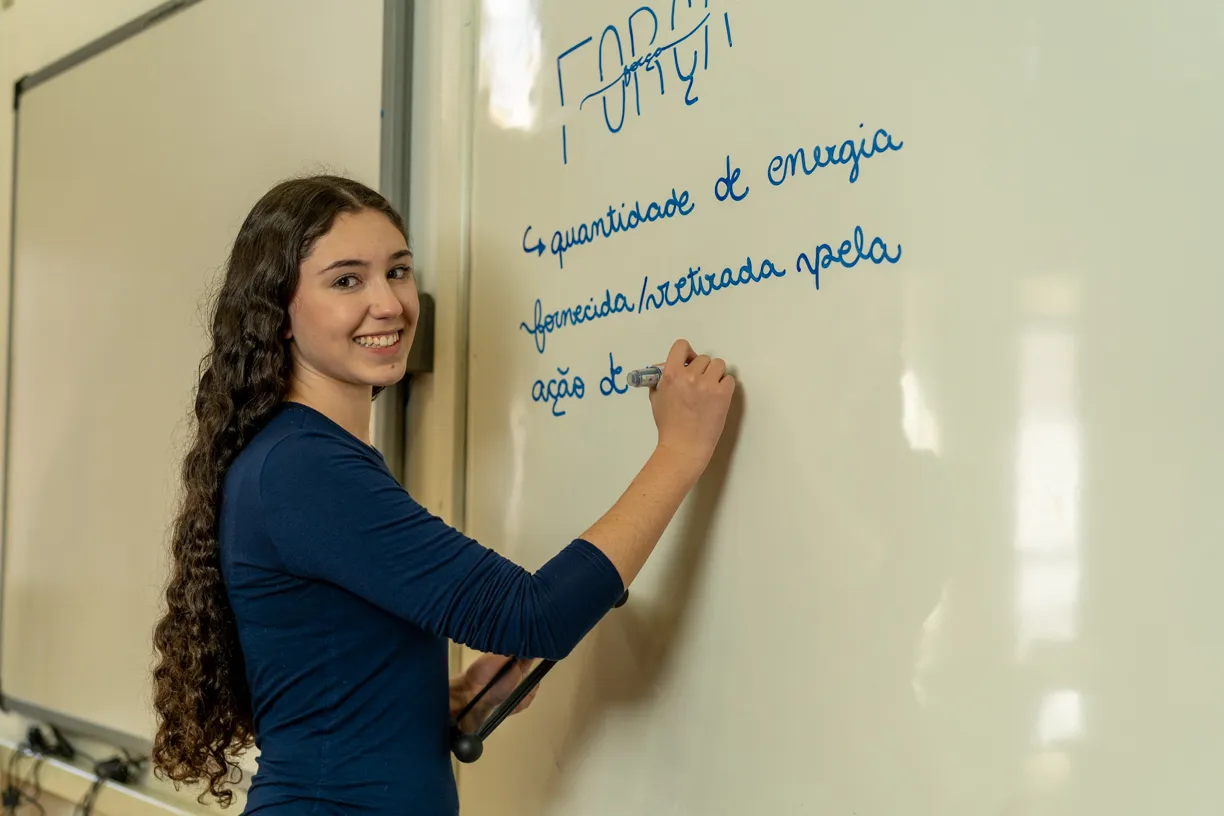 FORÇA
força
↳ quantidade de energia
fornecida/retirada pela
ação de